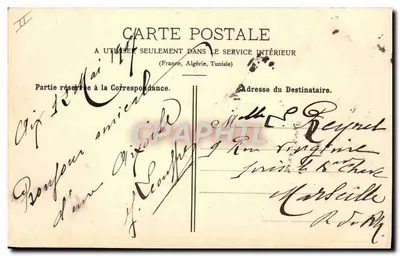 II
CARTE POSTALE
A UTILISER SEULEMENT DANS LE SERVICE INTÉRIEUR
(France, Algérie, Tunisie)
Partie réservée à la Correspondance.
Adresse du Destinataire.
Aix 12 Mai
Bonjour amical
d'une Aixoise
CPAPHIL
Melle L. Reynet
9 Rue
près le
Marseille
B. du Rh.